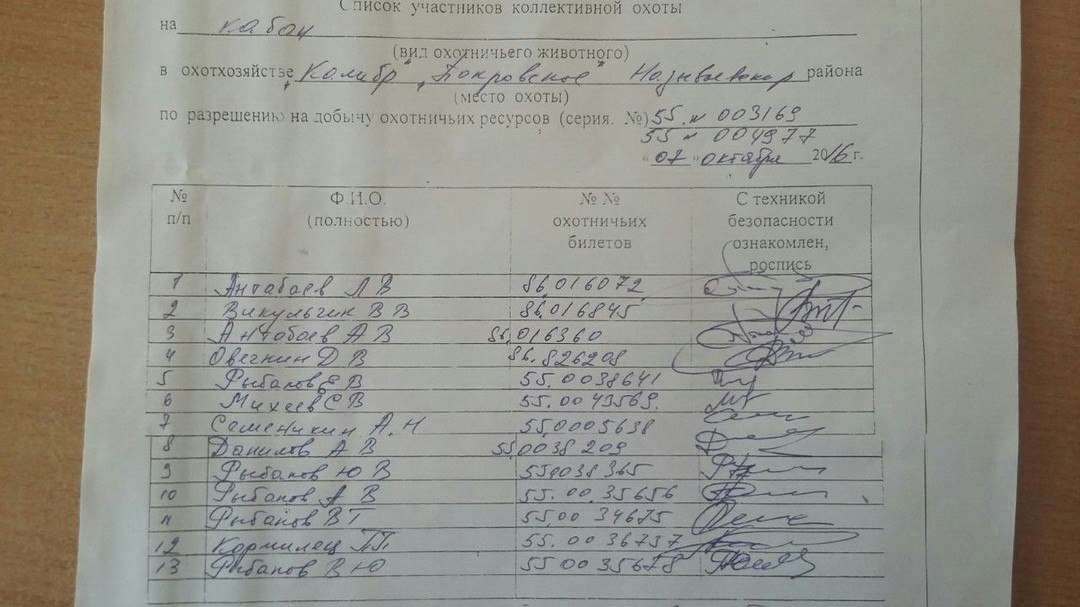 Список участников коллективной охоты
на кабан
(вид охотничьего животного)
в охотхозяйстве „Калибр" „Покровское" Называевскор района
(место охоты)
по разрешению на добычу охотничьих ресурсов (серия. №) 55 № 003169
55 № 004977
"07" октября 2016 г.
№ п/п Ф.И.О. (полностью) № № охотничьих билетов С техникой безопасности ознакомлен, роспись
1 Антабаев Л В 86,016072
2 Викульчик В В 86,016845
3 Антабаев А В 86,016360
4 Овечкин Д В 86.826208
5 Рыбаков Е В 55.0038641
6 Михеев С В 55.0043569.
7 Саменикин А.Н 55,0005638
8 Данилов А В 550038 209
9 Рыбаков Ю В 550038365
10 Рыбаков А В 55.00.35656
11 Рыбаков В Т 55,00 34675
12 Кормилец П П 55.00 36737
13 Рыбаков В Ю 55 0035678